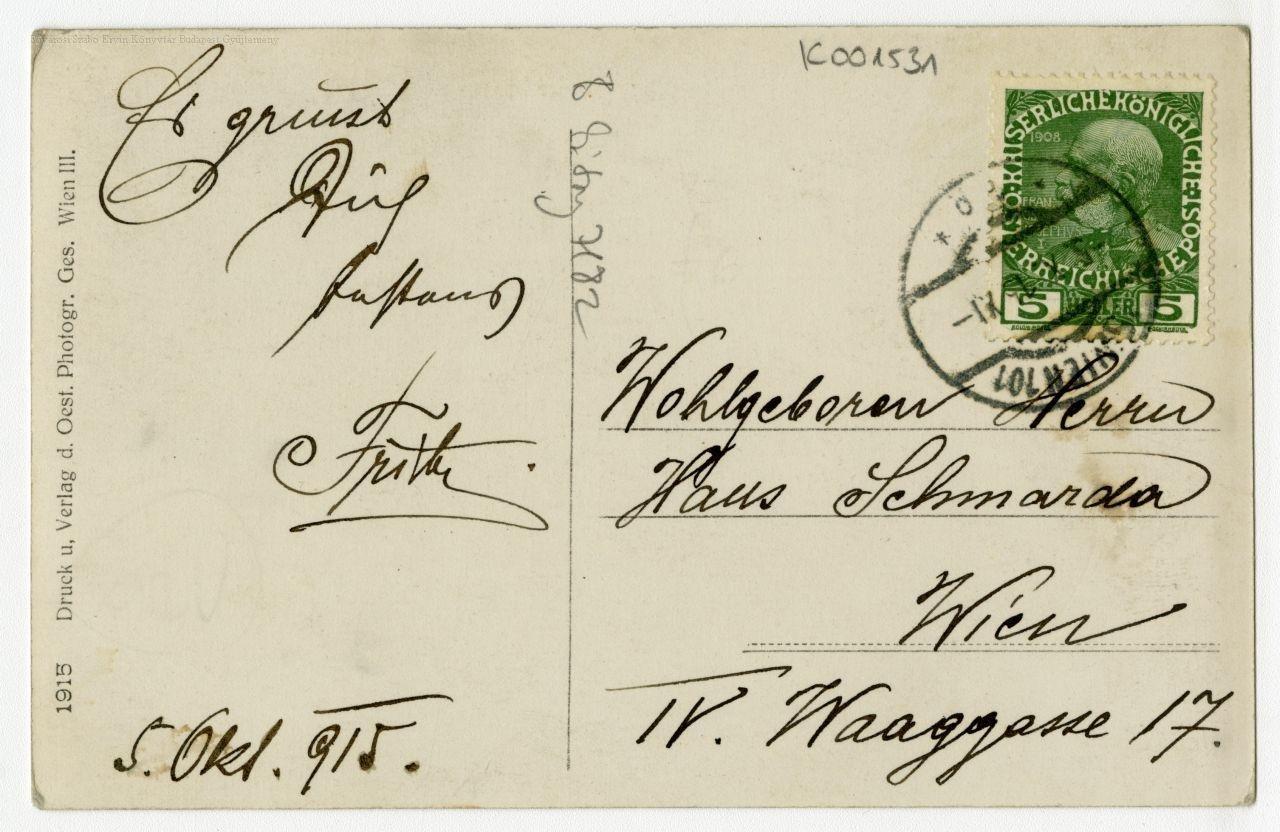 Fővárosi Szabó Ervin Könyvtár Budapest Gyűjtemény
K001531
Es grüsst
Dich
Fritz.
5. Okt. 915.
1915 Druck u, Verlag d. Oest. Photogr. Ges. Wien III.
KAISERLICHE KÖNIGLICHE
ÖSTERREICHISCHE POST
1908
FRANC
IOSEPHVS
I
5 HELLER 5
WIEN 101
Wohlgeboren Herrn
Hans Schmarda
Wien
IV. Waaggasse 17.